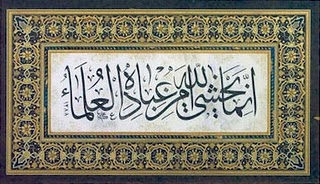 انما يخشى الله من عباده العلماء